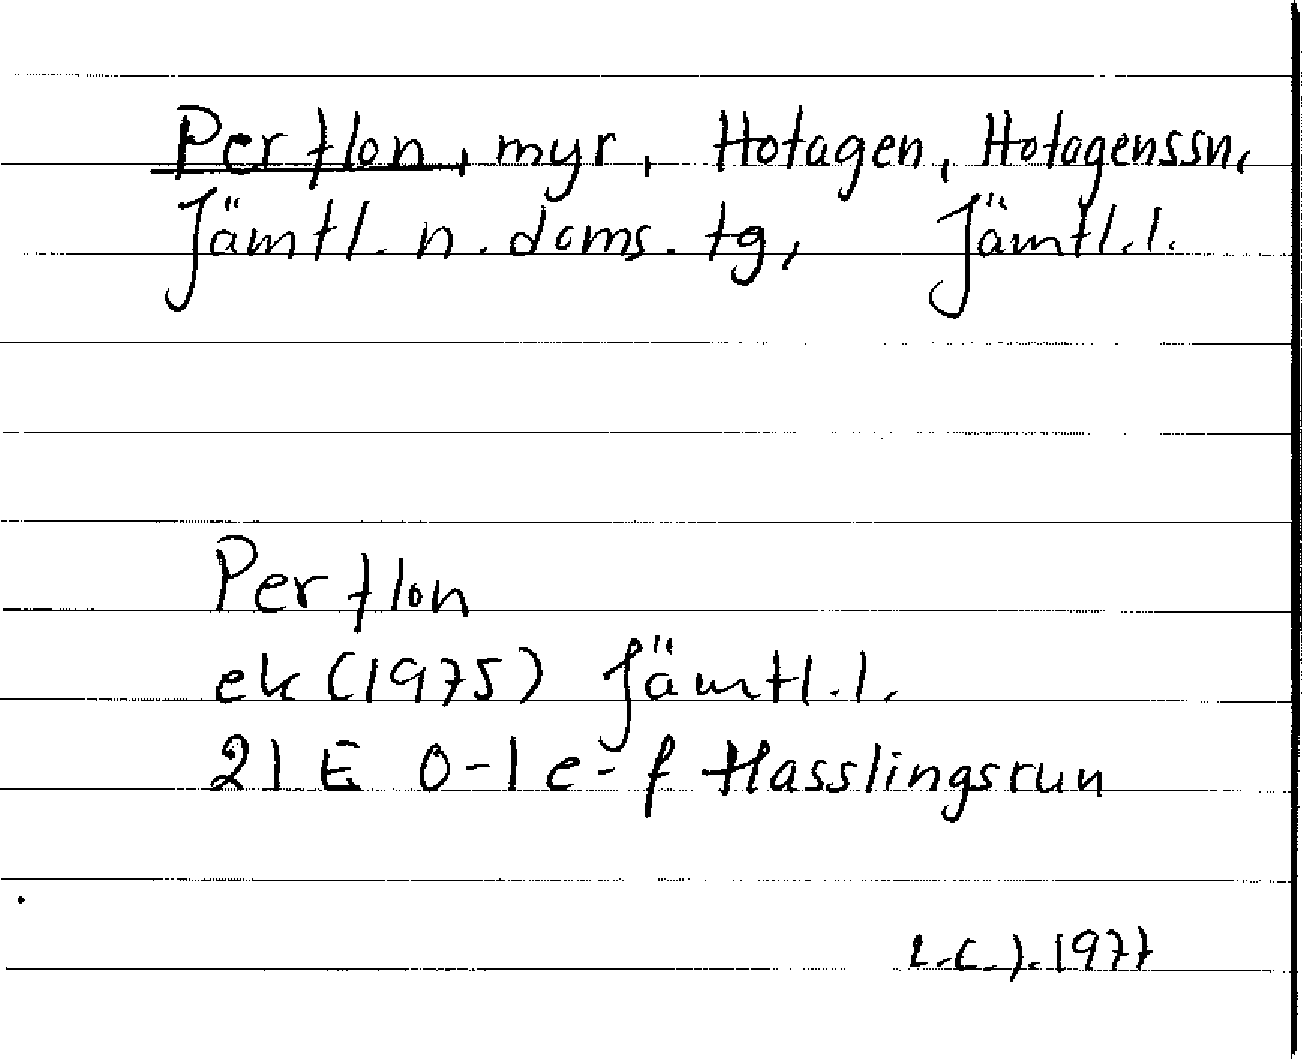 Perflon, myr, Hotagen, Hotagenssn,
Jämtl. n. doms. tg, Jämtl. l.
Perflon
ek (1975) Jämtl. l.
21 E 0-1 e-f Hasslingsrun
1977